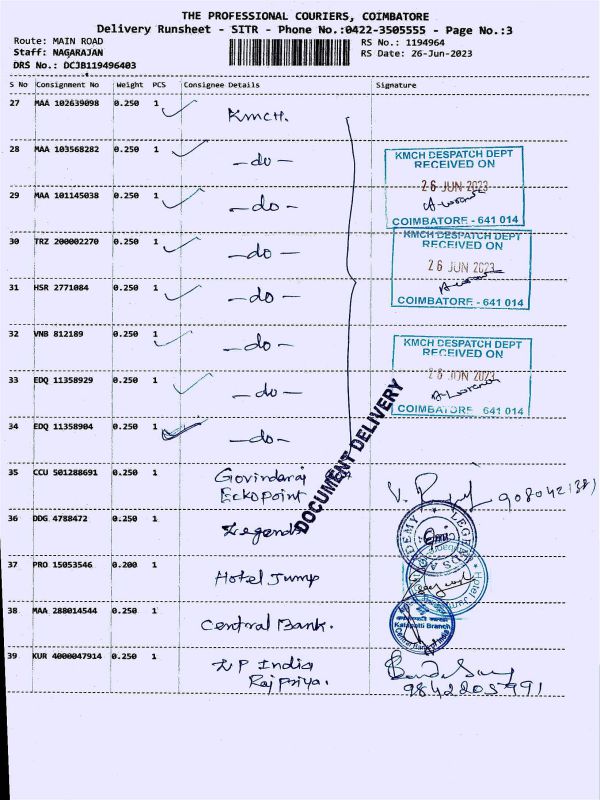 THE PROFESSIONAL COURIERS, COIMBATORE
Delivery Runsheet - SITR - Phone No.:0422-3505555 - Page No.:3
Route: MAIN ROAD
RS No.: 1194964
Staff: NAGARAJAN
RS Date: 26-Jun-2023
DRS No.: DCJB119496403
S No Consignment No Weight PCS Consignee Details Signature
27 MAA 102639098 0.250 1 KMCH.
28 MAA 103568282 0.250 1 -do-
KMCH DESPATCH DEPT
RECEIVED ON
26 JUN 2023
COIMBATORE - 641 014
29 MAA 101145038 0.250 1 -do-
30 TRZ 200002270 0.250 1 -do-
KMCH DESPATCH DEPT
RECEIVED ON
26 JUN 2023
COIMBATORE - 641 014
31 HSR 2771084 0.250 1 -do-
32 VNB 812189 0.250 1 -do-
KMCH DESPATCH DEPT
RECEIVED ON
26 JUN 2023
COIMBATORE 641 014
33 EDQ 11358929 0.250 1 -do-
34 EDQ 11358904 0.250 1 -do-
DOCUMENT DELIVERY
35 CCU 501288691 0.250 1 Govindaraj
Eckopoint
36 DDG 4788472 0.250 1 Legends
LEGENDS ACADEMY
37 PRO 15053546 0.200 1 Hotel Jump
Hotel
38 MAA 288014544 0.250 1 Central Bank.
Kalapatti Branch
Central Bank of India
39 KUR 4000047914 0.250 1 India
Rajpriya.